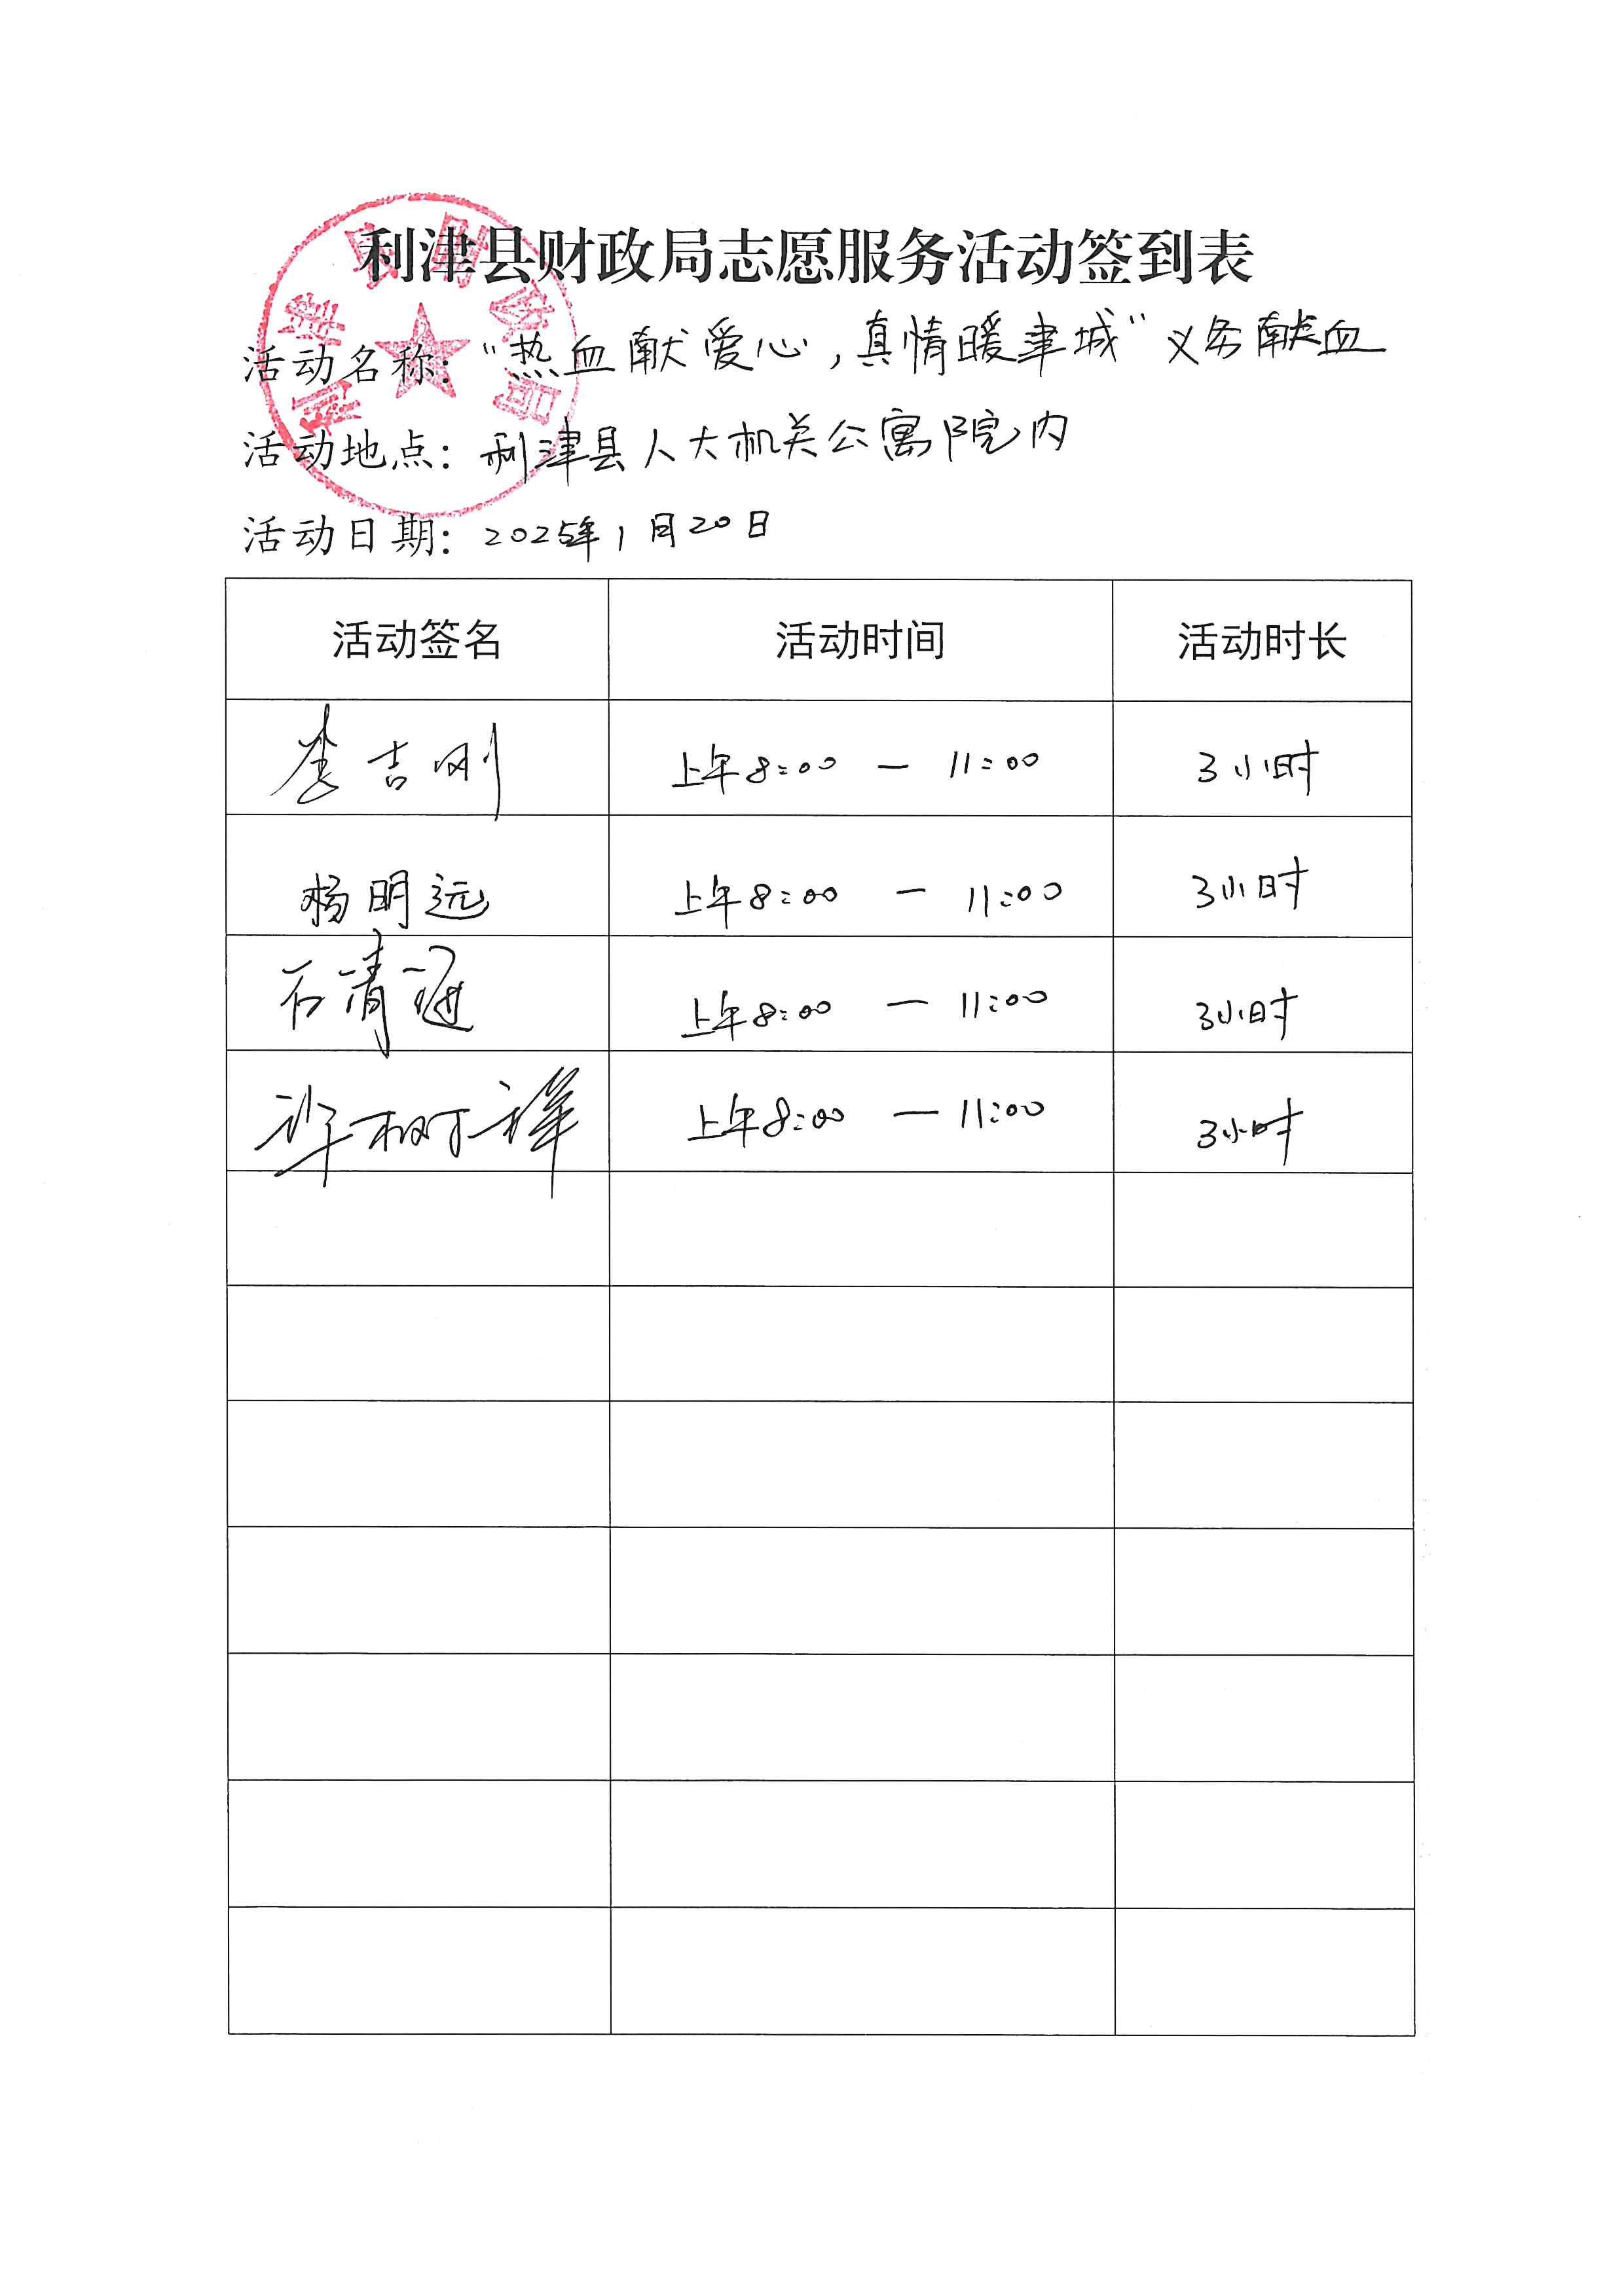 利津县财政局志愿服务活动签到表
利津县财政局
活动名称："热血献爱心，真情暖津城"义务献血
活动地点：利津县人大机关公寓院内
活动日期：2025年1月20日
活动签名 活动时间 活动时长
李吉刚 上午8:00 — 11:00 3小时
杨明远 上午8:00 — 11:00 3小时
石清 上午8:00 — 11:00 3小时
许树祥 上午8:00 — 11:00 3小时